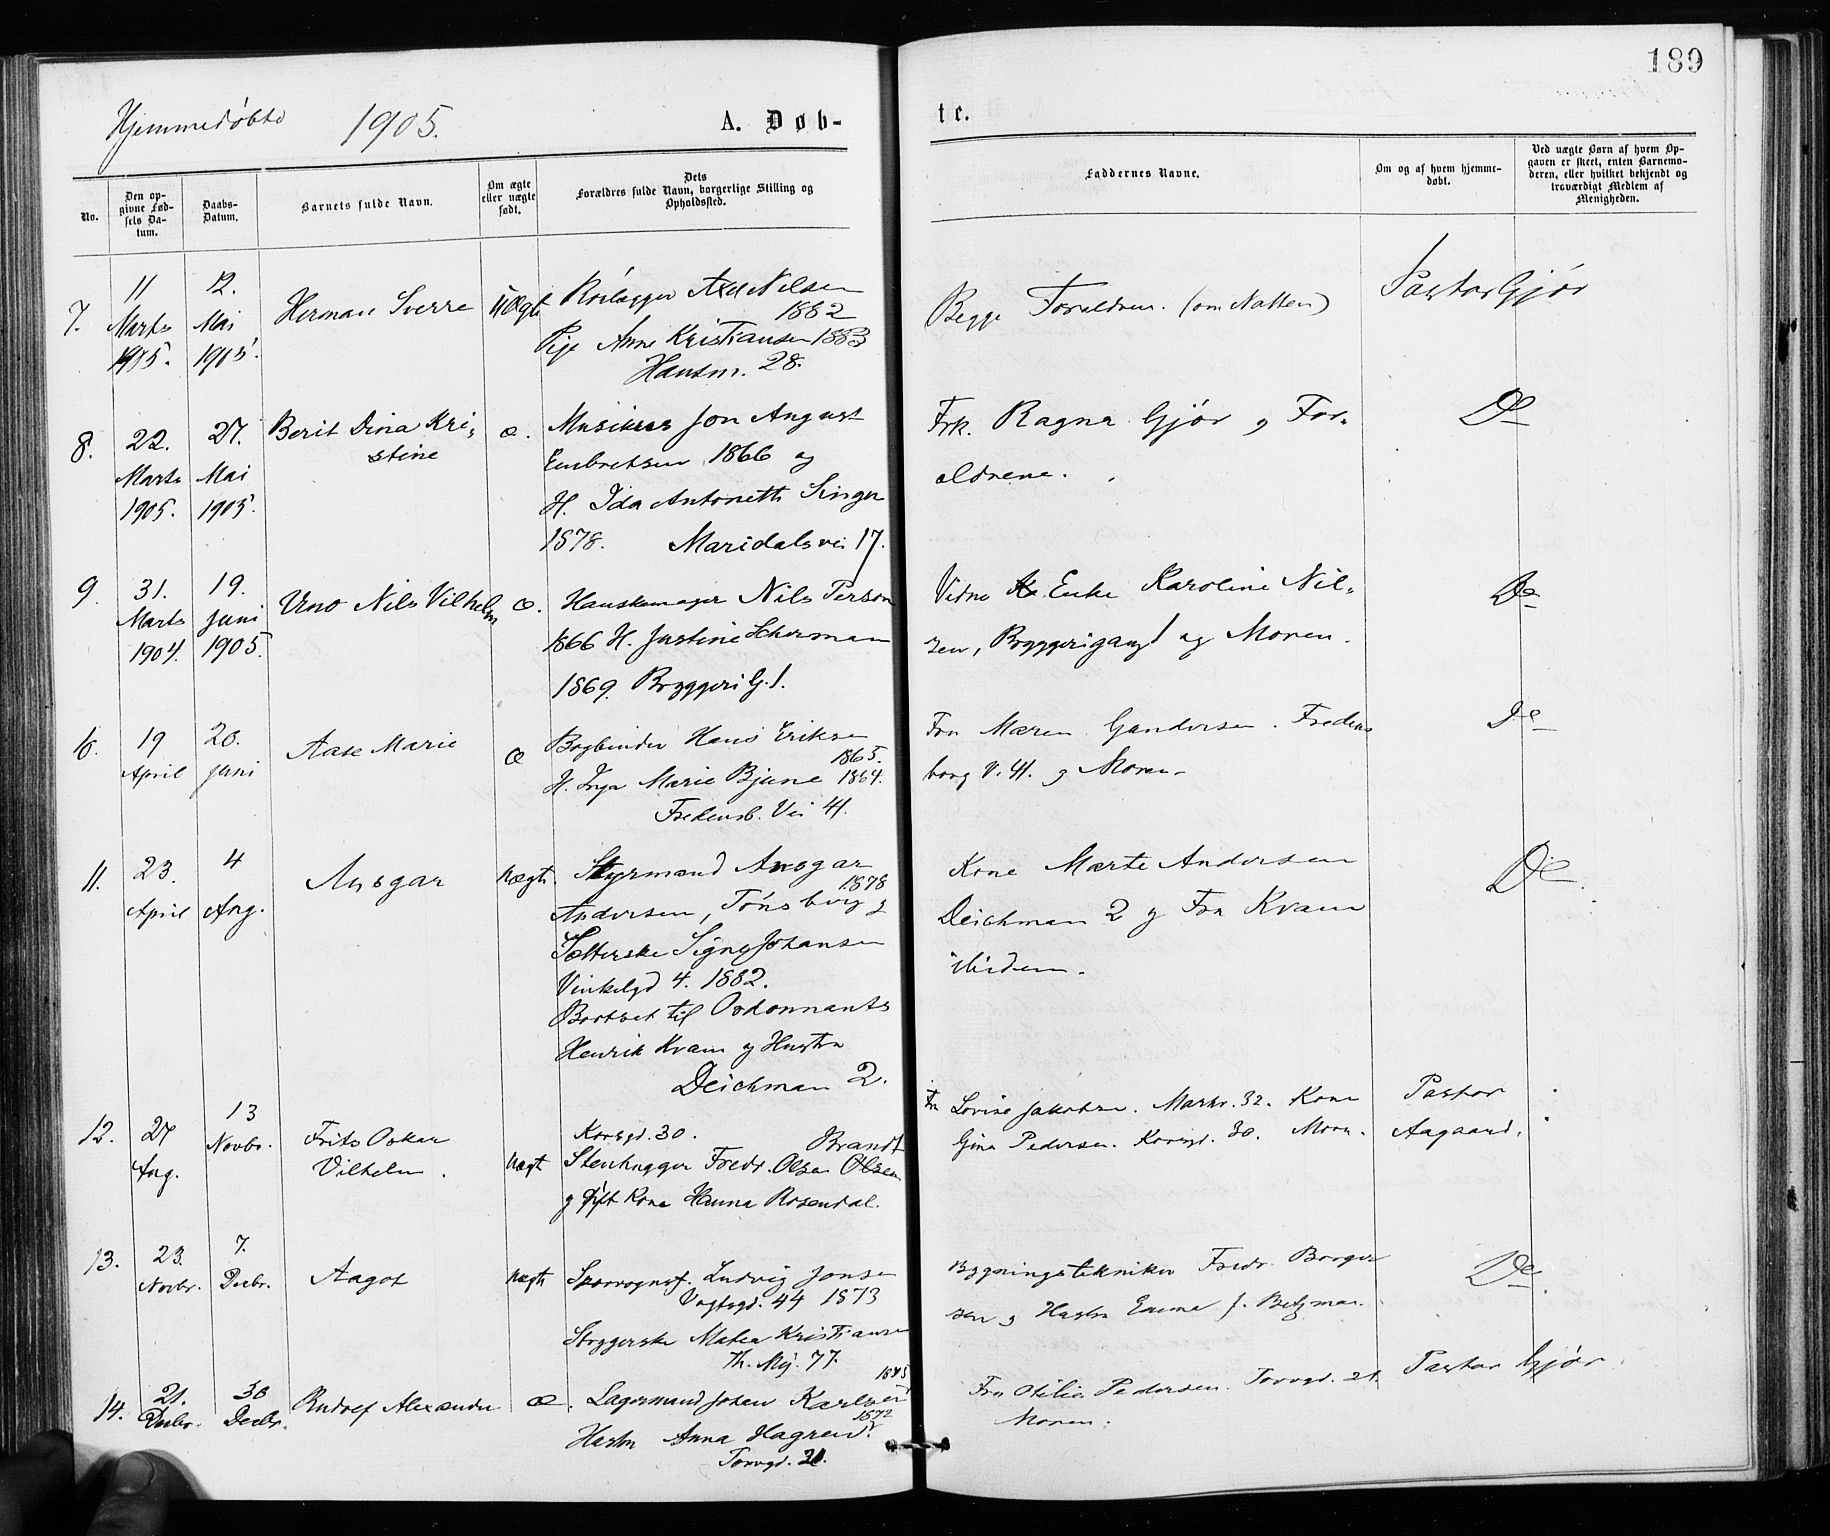 189
Hjemmedøbte 1905. A. Døb- te.
No.
Den op-
givne Fød-
sels Da-
tum.
Daabs-
Datum.
Barnets fulde Navn.
Om ægte
eller uægte
født.
Dets
Forældres fulde Navn, borgerlige Stilling og
Opholdssted.
Faddernes Navne.
Om og af hvem hjemme-
døbt.
Ved uægte Børn af hvem Op-
gaven er skeet, enten Barnemo-
deren, eller hvilket bekjendt og
troværdigt Medlem af
Menigheden.
7.
11
Marts
1905.
12.
Mai
1905.
Herman Sverre
Uægt
Rørlægger Axel Nilsen
1882
Pige Anne Kristiansen 1883
Hausm. 28.
Begge Forældrene. (om Natten)
Pastor Gjør
8.
22.
Marts
1905.
27.
Mai
1905.
Berit Dina Kri-
stine
æ.
Musiker Jon August
Embretsen 1866 og
H. Ida Antonette Singer
1878. Maridalsvei 17.
Frk. Ragna Gjør og For-
ældrene.
Do
9.
31.
Marts
1904.
19.
Juni
1905.
Uno Nils Vilhelm
æ.
Hanskemager Nils Person
1866 H. Justine Scherman
1869. Bryggeri G. 1.
Vidne Enke Karoline Nil-
sen, Bryggerigang 1 og Moren.
Do
10.
19
April
20.
Juni
Aase Marie
æ
Bogbinder Hans Eriksen
1865.
H. Inga Marie Bjune 1864.
Fredensb. Vei 41.
Fru Maren Gundersen. Fredens
borg V. 41. og Moren.
Do
11.
23.
April
4
Aug.
Ansgar
uægte.
Styrmand Ansgar
1878
Andersen, Tønsberg og
Sætterske Signe Johansen
Vinkelgd 4. 1882.
Bortsat til Ordonnants
Henrik Kvam og Hustru
Deichman 2.
Kone Marte Andersen
Deichman 2 og Fru Kvam
ibidem.
Do
12.
27
Aug.
13
Novbr.
Frits Oskar
Vilhelm.
uægt
Korsgd. 30.
Brandt
Stenhugger Fredr. Olsen Olsen
og gift Kone Hanna Rosendal.
Fru Lovise Jakobsen. Markv. 32. Kone
Gina Pedersen. Korsgd. 30. Moren.
Pastor
Aagaard.
13.
23.
Novbr.
7.
Decbr.
Aagot
uægte
Sporvognsf. Ludvig Jonse
Vogtsgd. 44 1873
Strygerske Matea Kristiansen
Th. Mej. 77.
Bygningstekniker Fredr. Borger
sen og Hustru Emma f. Bergman.
Do
14.
21.
Decbr.
30
Decbr.
Rudolf Alexander
æ.
1845
Lagermand Johan Karlsen
1872
Hustru Anna Hagren.
Torvgd. 21.
Fru Otilie Pedersen. Torvgd. 21.
Moren.
Pastor Gjør.